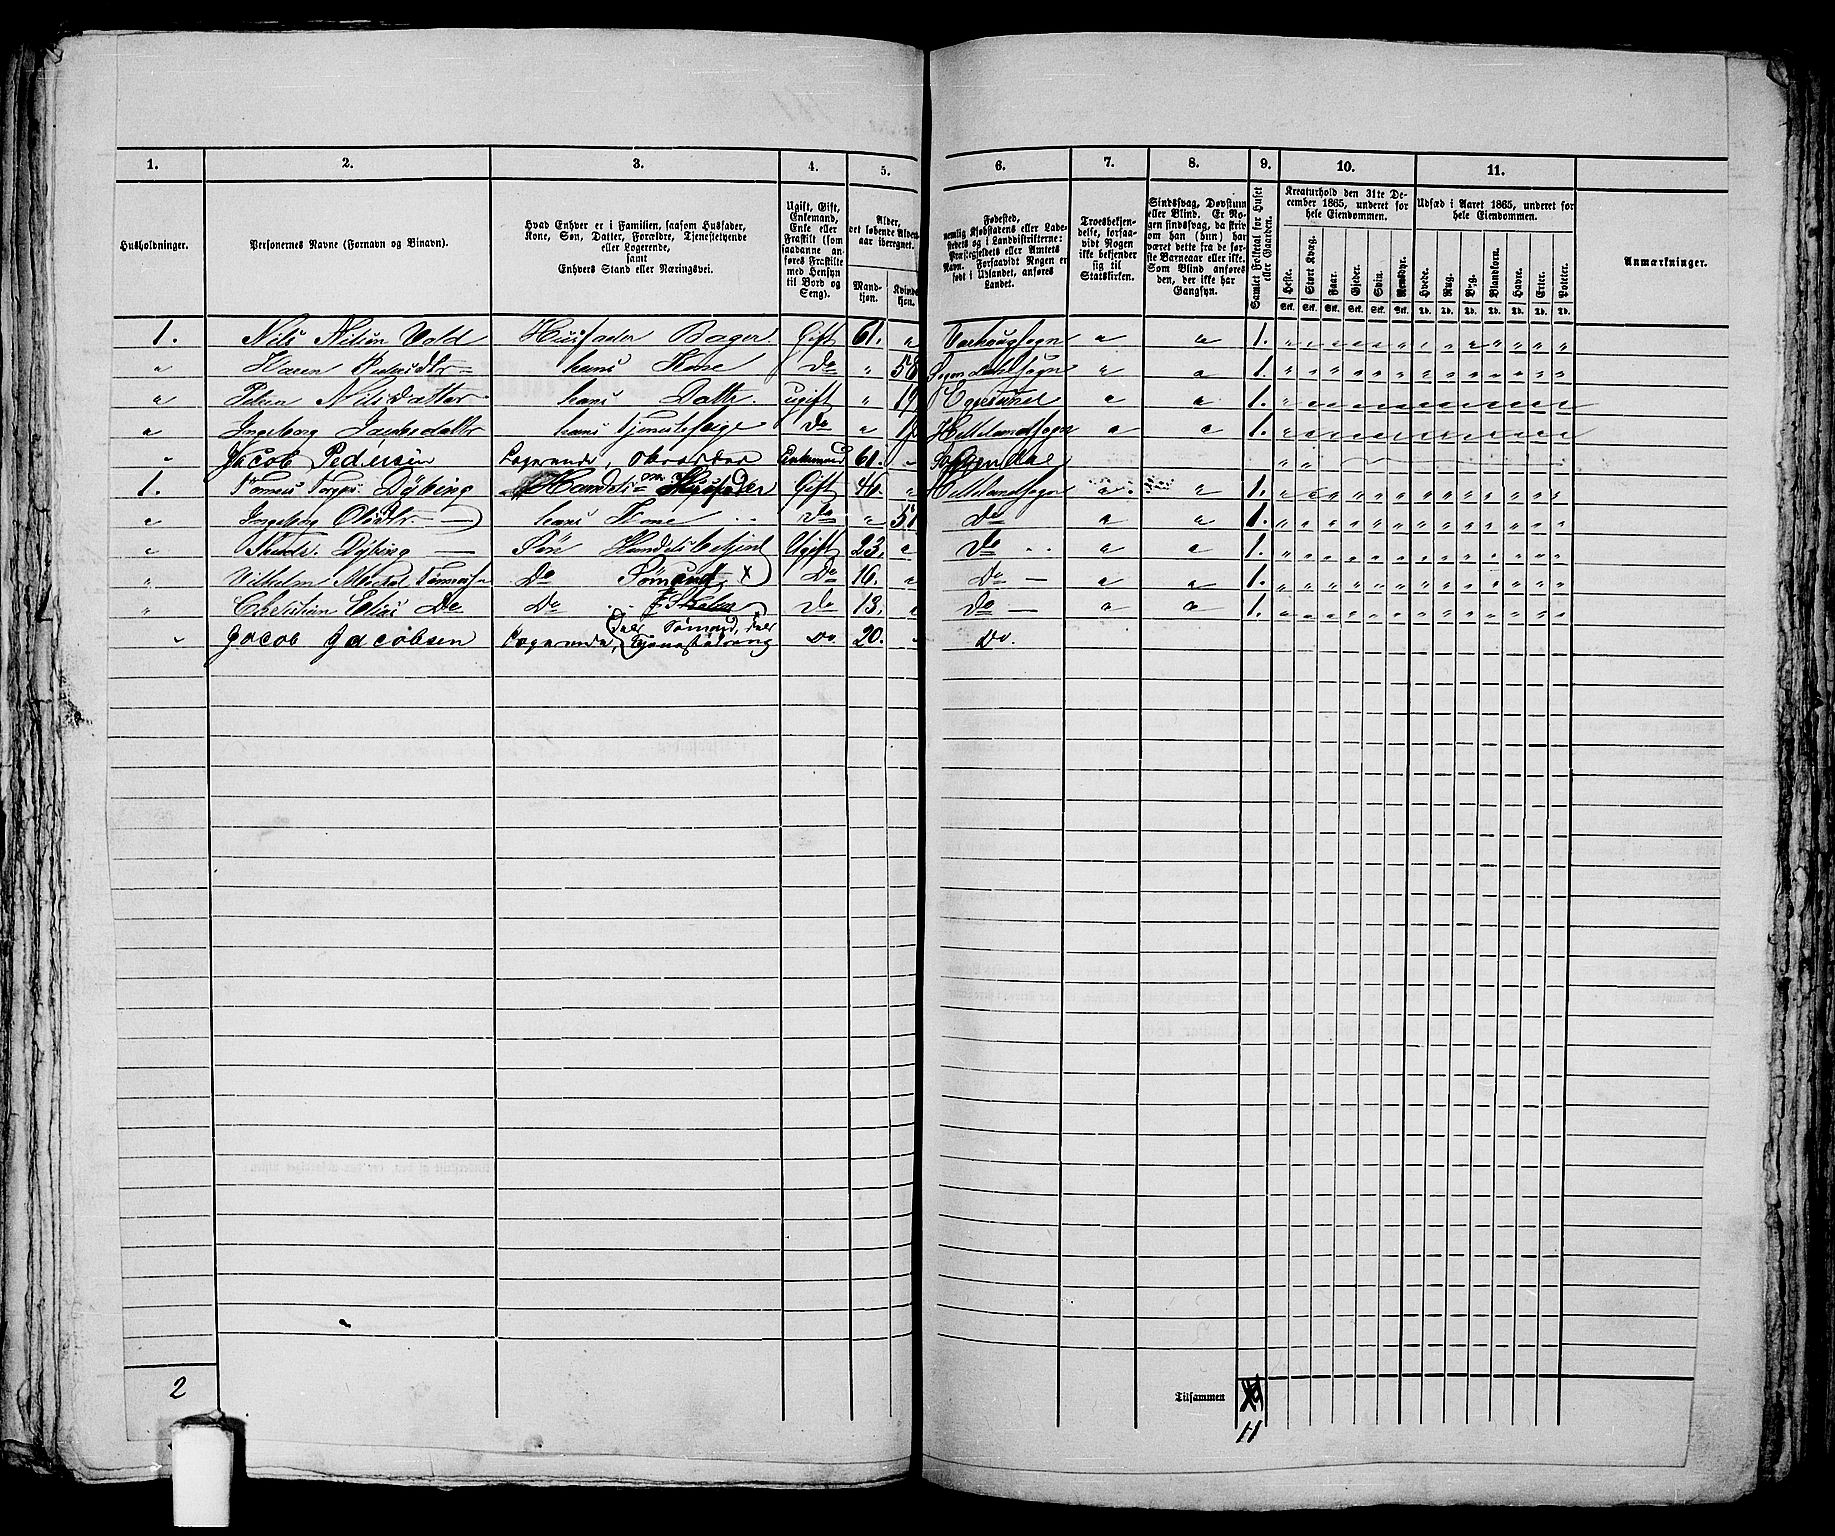 1. 2. 3. 4. 5. 6. 7. 8. 9. 10. 11.
Husholdninger.
Personernes Navne (Fornavn og Binavn).
Hvad Enhver er i Familien, saasom Husfader,
Kone, Søn, Datter, Forældre, Tjenestetyende
eller Logerende,
samt
Enhvers Stand eller Næringsvei.
Ugift, Gift,
Enkemand,
Enke eller
Fraskilt (som
saadanne an-
føres Fraskilte
med Hensyn
til Bord og
Seng).
Alder,
det løbende Alders-
aar iberegnet.
Mand-
kjøn.
Kvinde-
kjøn.
Fødested,
nemlig Kjøbstadens eller Lade-
stedets og i Landdistrikterne:
Præstegjeldets eller Amtets
Navn. Forsaavidt Nogen er
født i Udlandet, anføres
Landet.
Troesbekjen-
delse, forsaa-
vidt Nogen
ikke bekjender
sig til
Statskirken.
Sindssvag, Døvstum
eller Blind. Er No-
gen sindssvag, da skriv
om han (hun) har
været dette fra de før-
ste Barneaar eller ikke.
Som Blind anføres
den, der ikke har
Gangsyn.
Samlet Folketal for Huset
eller Gaarden.
Kreaturhold den 31te De-
cember 1865, underet for
hele Eiendommen.
Heste. Stort Kvæg. Faar. Gjeder. Svin. Rensdyr.
Stk. Stk. Stk. Stk. Stk. Stk.
Udsæd i Aaret 1865, underet for
hele Eiendommen.
Hvede. Rug. Byg. Blandkorn. Havre. Erter. Poteter.
Td. Td. Td. Td. Td. Td. Td.
Anmærkninger.
1. Nils Nilsen Vold Husfader Bager Gift 61. " Varhougsogn " " 1.
" Karen hans Kone Do " 58 1.
" Nilsdatter hans Datter ugift " 19 Egersund " " 1.
" Ingeborg Jacobsdatter hans Tjenestepige Do " Hellelandsogn " " 1.
" Jacob Pedersen Logerende, Enkemand 61. " Sogendal
1. Tønnes Dybing Handelsm Husfader Gift " Hellelandsogn " " 1.
" Ingeborg Olsdtr hans Kone Do " 51 Do " " 1.
" Dybing Søn Handelsbetjent Ugift 23. " Do " " 1.
" Vilhelm Do Sømand X Do 16. " Do " " 1.
" Christian Elius Do Do Do 13. " Do " " 1.
" Jacob Jacobsen Logerende, Do 20. " Do.
2
Tilsammen
11